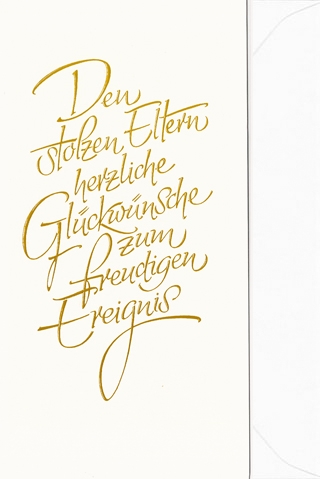 Den
stolzen Eltern
herzliche
Glückwünsche
zum
freudigen
Ereignis